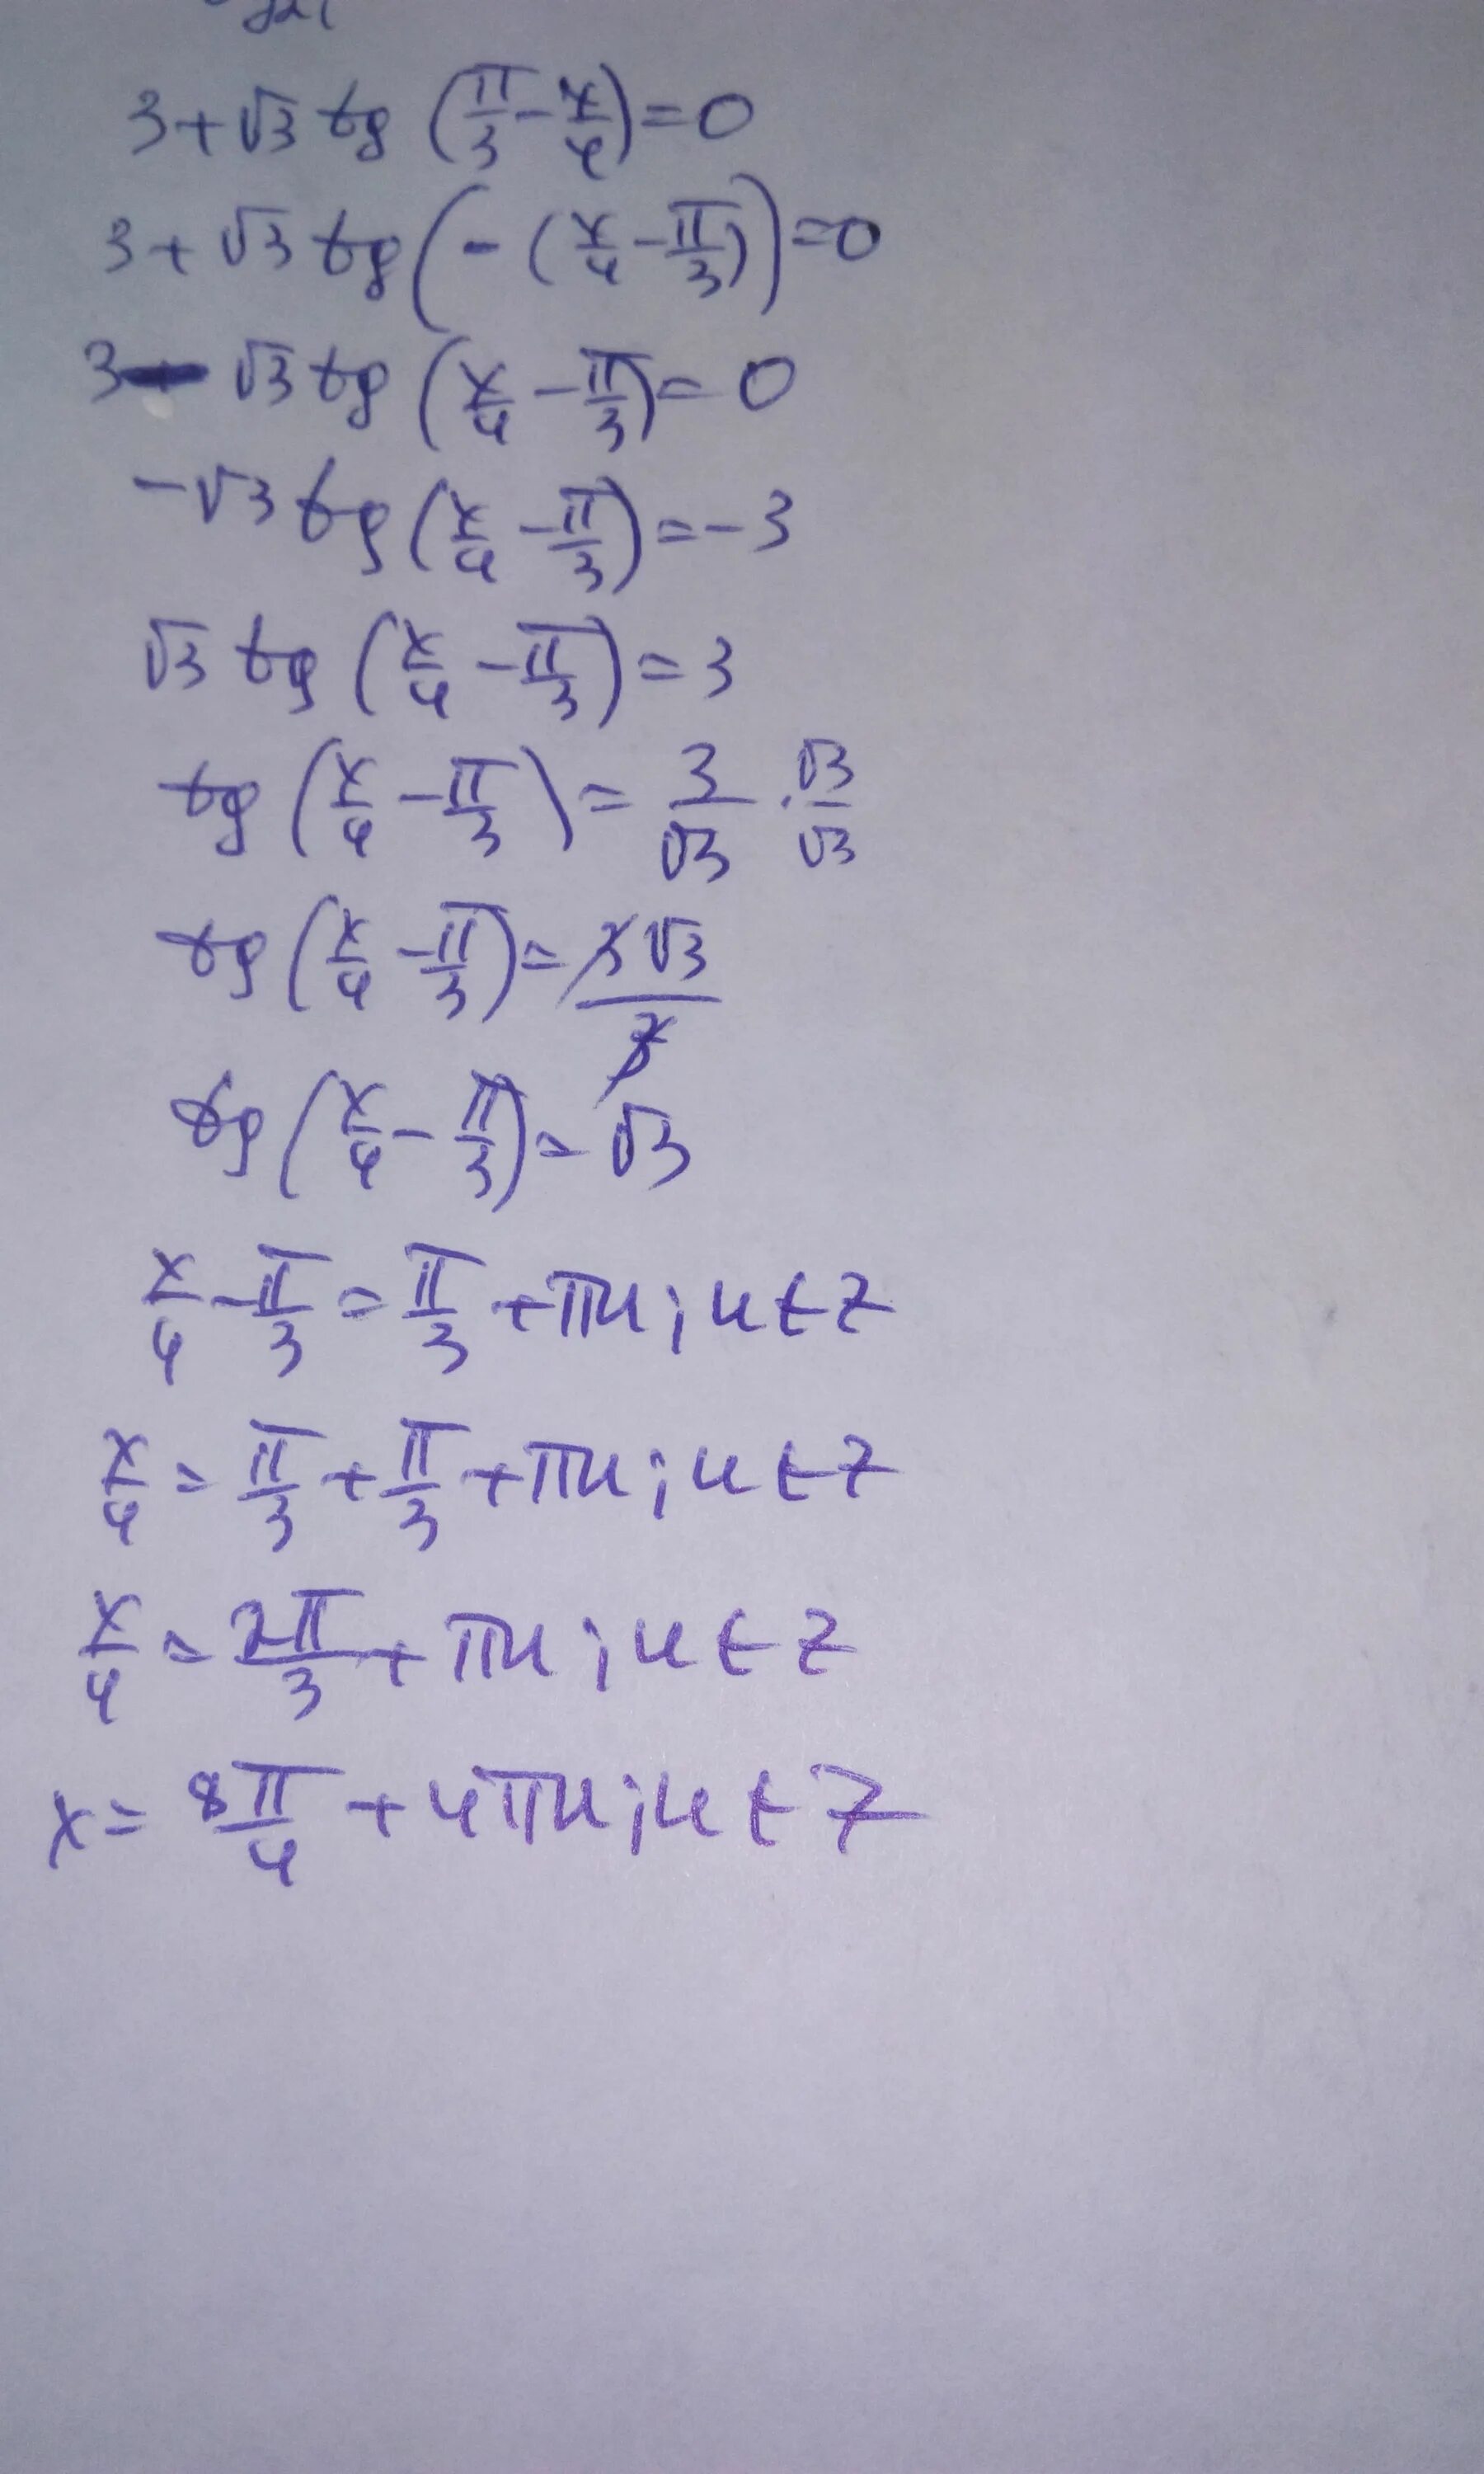 3+√3 tg (π/3 - x/4) = 0
3+√3 tg (-(x/4 - π/3)) = 0
3 - √3 tg (x/4 - π/3) = 0
-√3 tg (x/4 - π/3) = -3
√3 tg (x/4 - π/3) = 3
tg (x/4 - π/3) = 3/√3 · √3/√3
tg (x/4 - π/3) = 3√3/3
tg (x/4 - π/3) = √3
x/4 - π/3 = π/3 + πn; n ∈ Z
x/4 = π/3 + π/3 + πn; n ∈ Z
x/4 = 2π/3 + πn; n ∈ Z
x = 8π/4 + 4πn; n ∈ Z